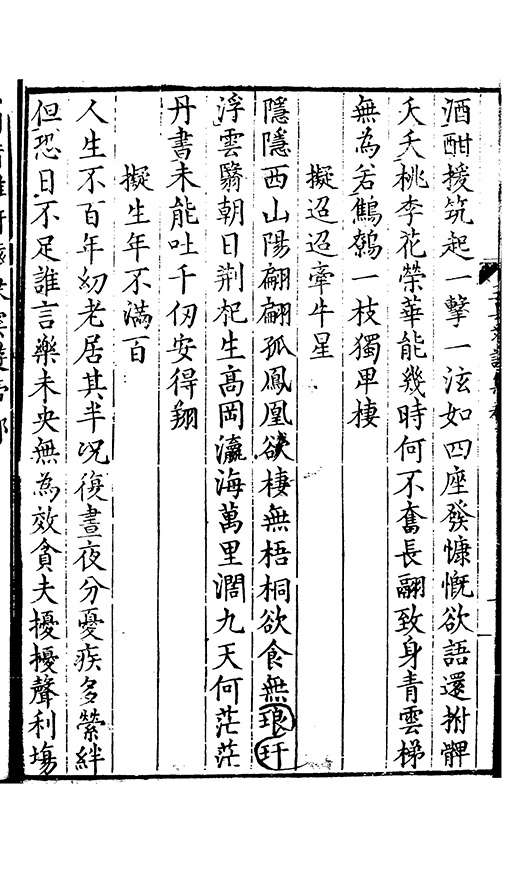 酒酣援筑起一擊一泫如四座發慷慨欲語還拊髀
夭夭桃李花榮華能幾時何不奮長翮致身青雲梯
無為若鷦鷯一枝獨卑棲
擬迢迢牽牛星
隱隱西山陽翩翩孤鳳凰欲棲無梧桐欲食無琅玕
浮雲翳朝日荆杞生高岡瀛海萬里濶九天何茫茫
丹書未能吐千仞安得翔
擬生年不滿百
人生不百年幼老居其半况復晝夜分憂疾多縈絆
但恐日不足誰言樂未央無為效貪夫擾擾聲利塲